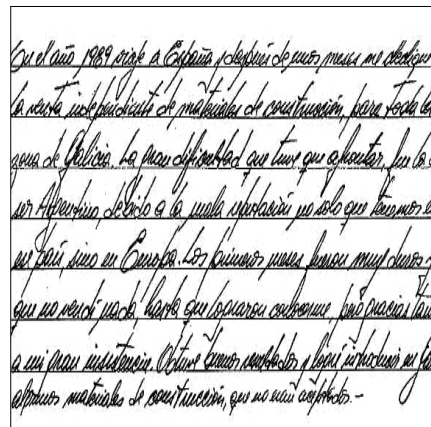 En el año 1989 viajé a España y después de unos meses me dediqué
la venta independiente de materiales de construcción, para toda la
zona de Galicia. La gran dificultad que tuve que afrontar, fue la de
ser Argentino, debido a la mala reputación no solo que tenemos e
en país, sino en Europa. Los primeros meses fueron muy duros
que no vendí nada, hasta que lograron conocerme, pero gracias tam
a mi gran insistencia. Obtuve buenos resultados y logré introducir en
algunos materiales de construcción, que no eran aceptados.-